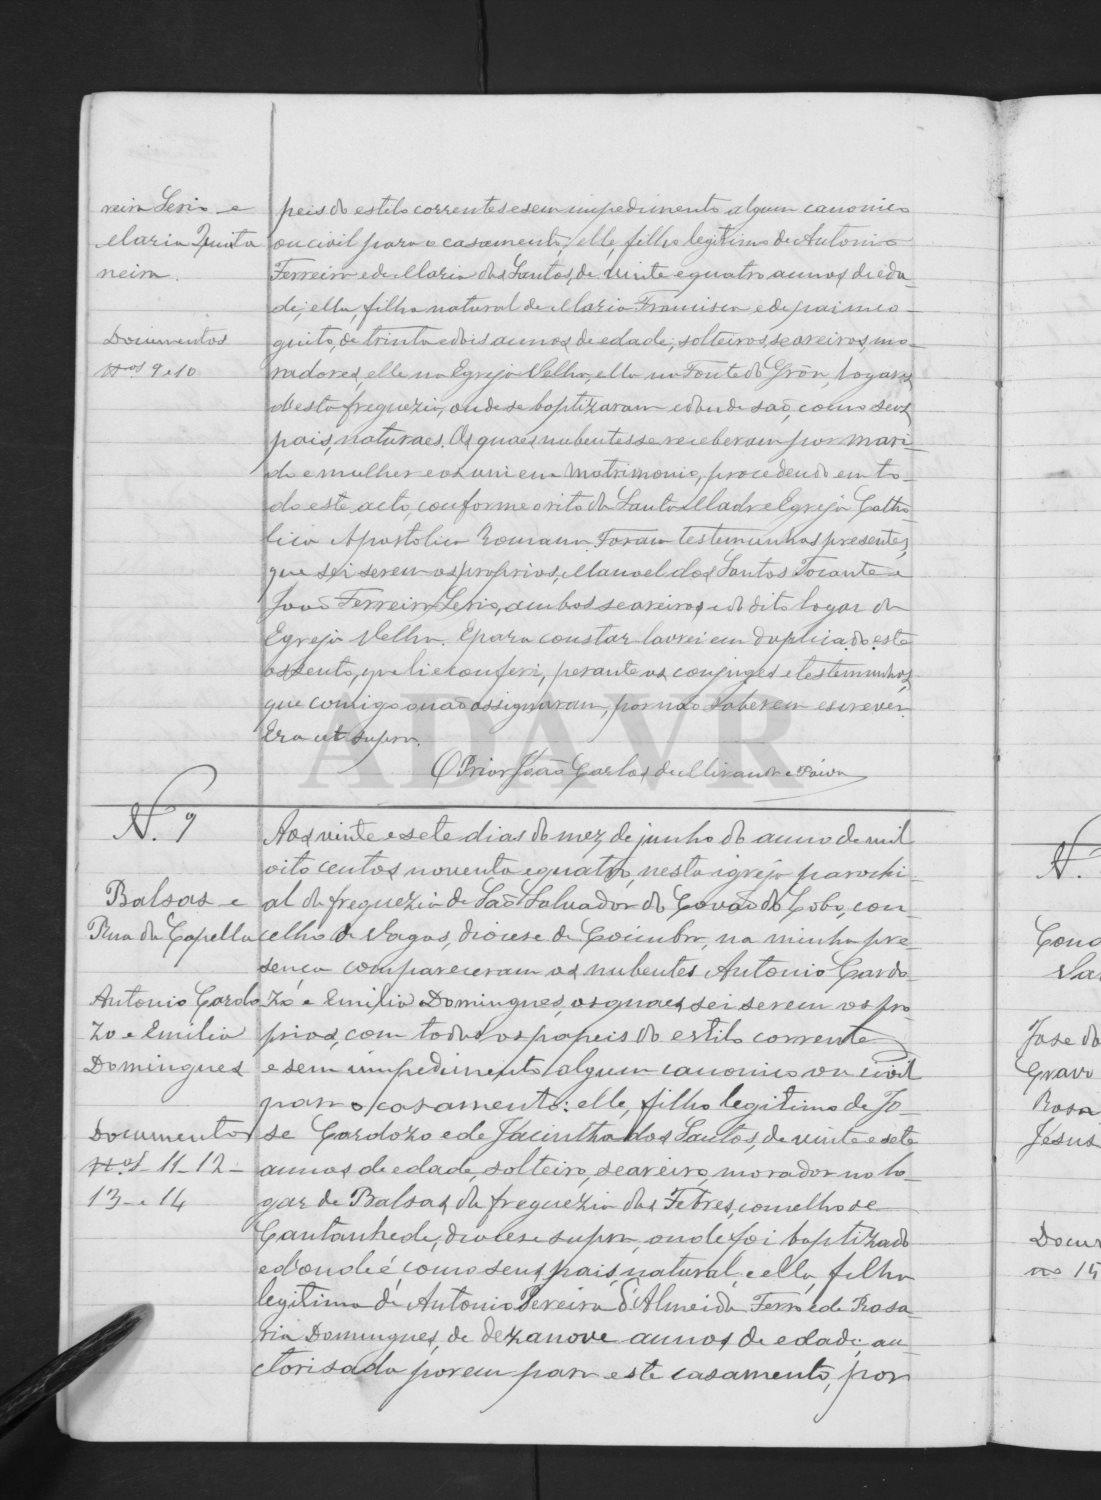 reira Serio e
Maria Quinta
neira.
Documentos
nos 9 e 10
peis do estilo correntes e sem impedimento algum canonico
ou civil para o casamento; elle, filho legitimo de Antonio
Ferreira e de Maria dos Santos, de vinte e quatro annos de eda-
de; ella, filha natural de Maria Francisca e de pai inco-
gnito, de trinta e dois annos de edade; solteiros, seareiros, mo-
radores, elle na Egreja Velha, ella na Fonte do Grão, logares
desta freguezia, onde se baptizaram e donde são, como seus
pais, naturaes. Os quaes nubentes se receberam por mari-
do e mulher e os uni em Matrimonio, procedendo em to-
do este acto, conforme o rito da Santa Madre Egreja Catho-
lica Apostolica Romana. Foram testemunhas presentes,
que sei serem os proprios, Manoel dos Santos Tocante e
João Ferreira Serio, ambos seareiros e do dito logar da
Egreja Velha. E para constar lavrei em duplicado este
assento, que li e conferi, perante os conjuges e testemunhas,
que comigo não assignaram, por não saberem escrever.
Era ut supra.
O Prior João Carlos de Miranda e Paiva
N. 9
Balsas e
Rua da Capella
Antonio Cardo
zo e Emilia
Domingues
Documentos
nos 11-12-
13 e 14
Aos vinte e sete dias do mez de junho do anno de mil
oito centos noventa e quatro, nesta igreja parochi-
al da freguezia de São Salvador do Covão do Lobo, con-
celho de Vagos, diocese de Coimbra, na minha pre-
sença compareceram os nubentes Antonio Cardo-
zo e Emilia Domingues, os quaes sei serem os pro-
prios, com todos os papeis do estilo corrente
e sem impedimento algum canonico ou civil
para o casamento: elle, filho legitimo de Jo-
se Cardozo e de Jacintha dos Santos, de vinte e sete
annos de edade, solteiro, seareiro, morador no lo-
gar de Balsas da freguezia das Febres, comelho de
Cantanhede, diocese supra, onde foi baptizado
e donde é, como seus pais, natural; e ella, filha
legitima de Antonio Pereira d'Almeida Ferro e de Rosa-
ria Domingues, de dezanove annos de edade; au-
ctorisada porem para este casamento, por
ADAVR
N.
Jose do
Rosa
Jesus
no 15